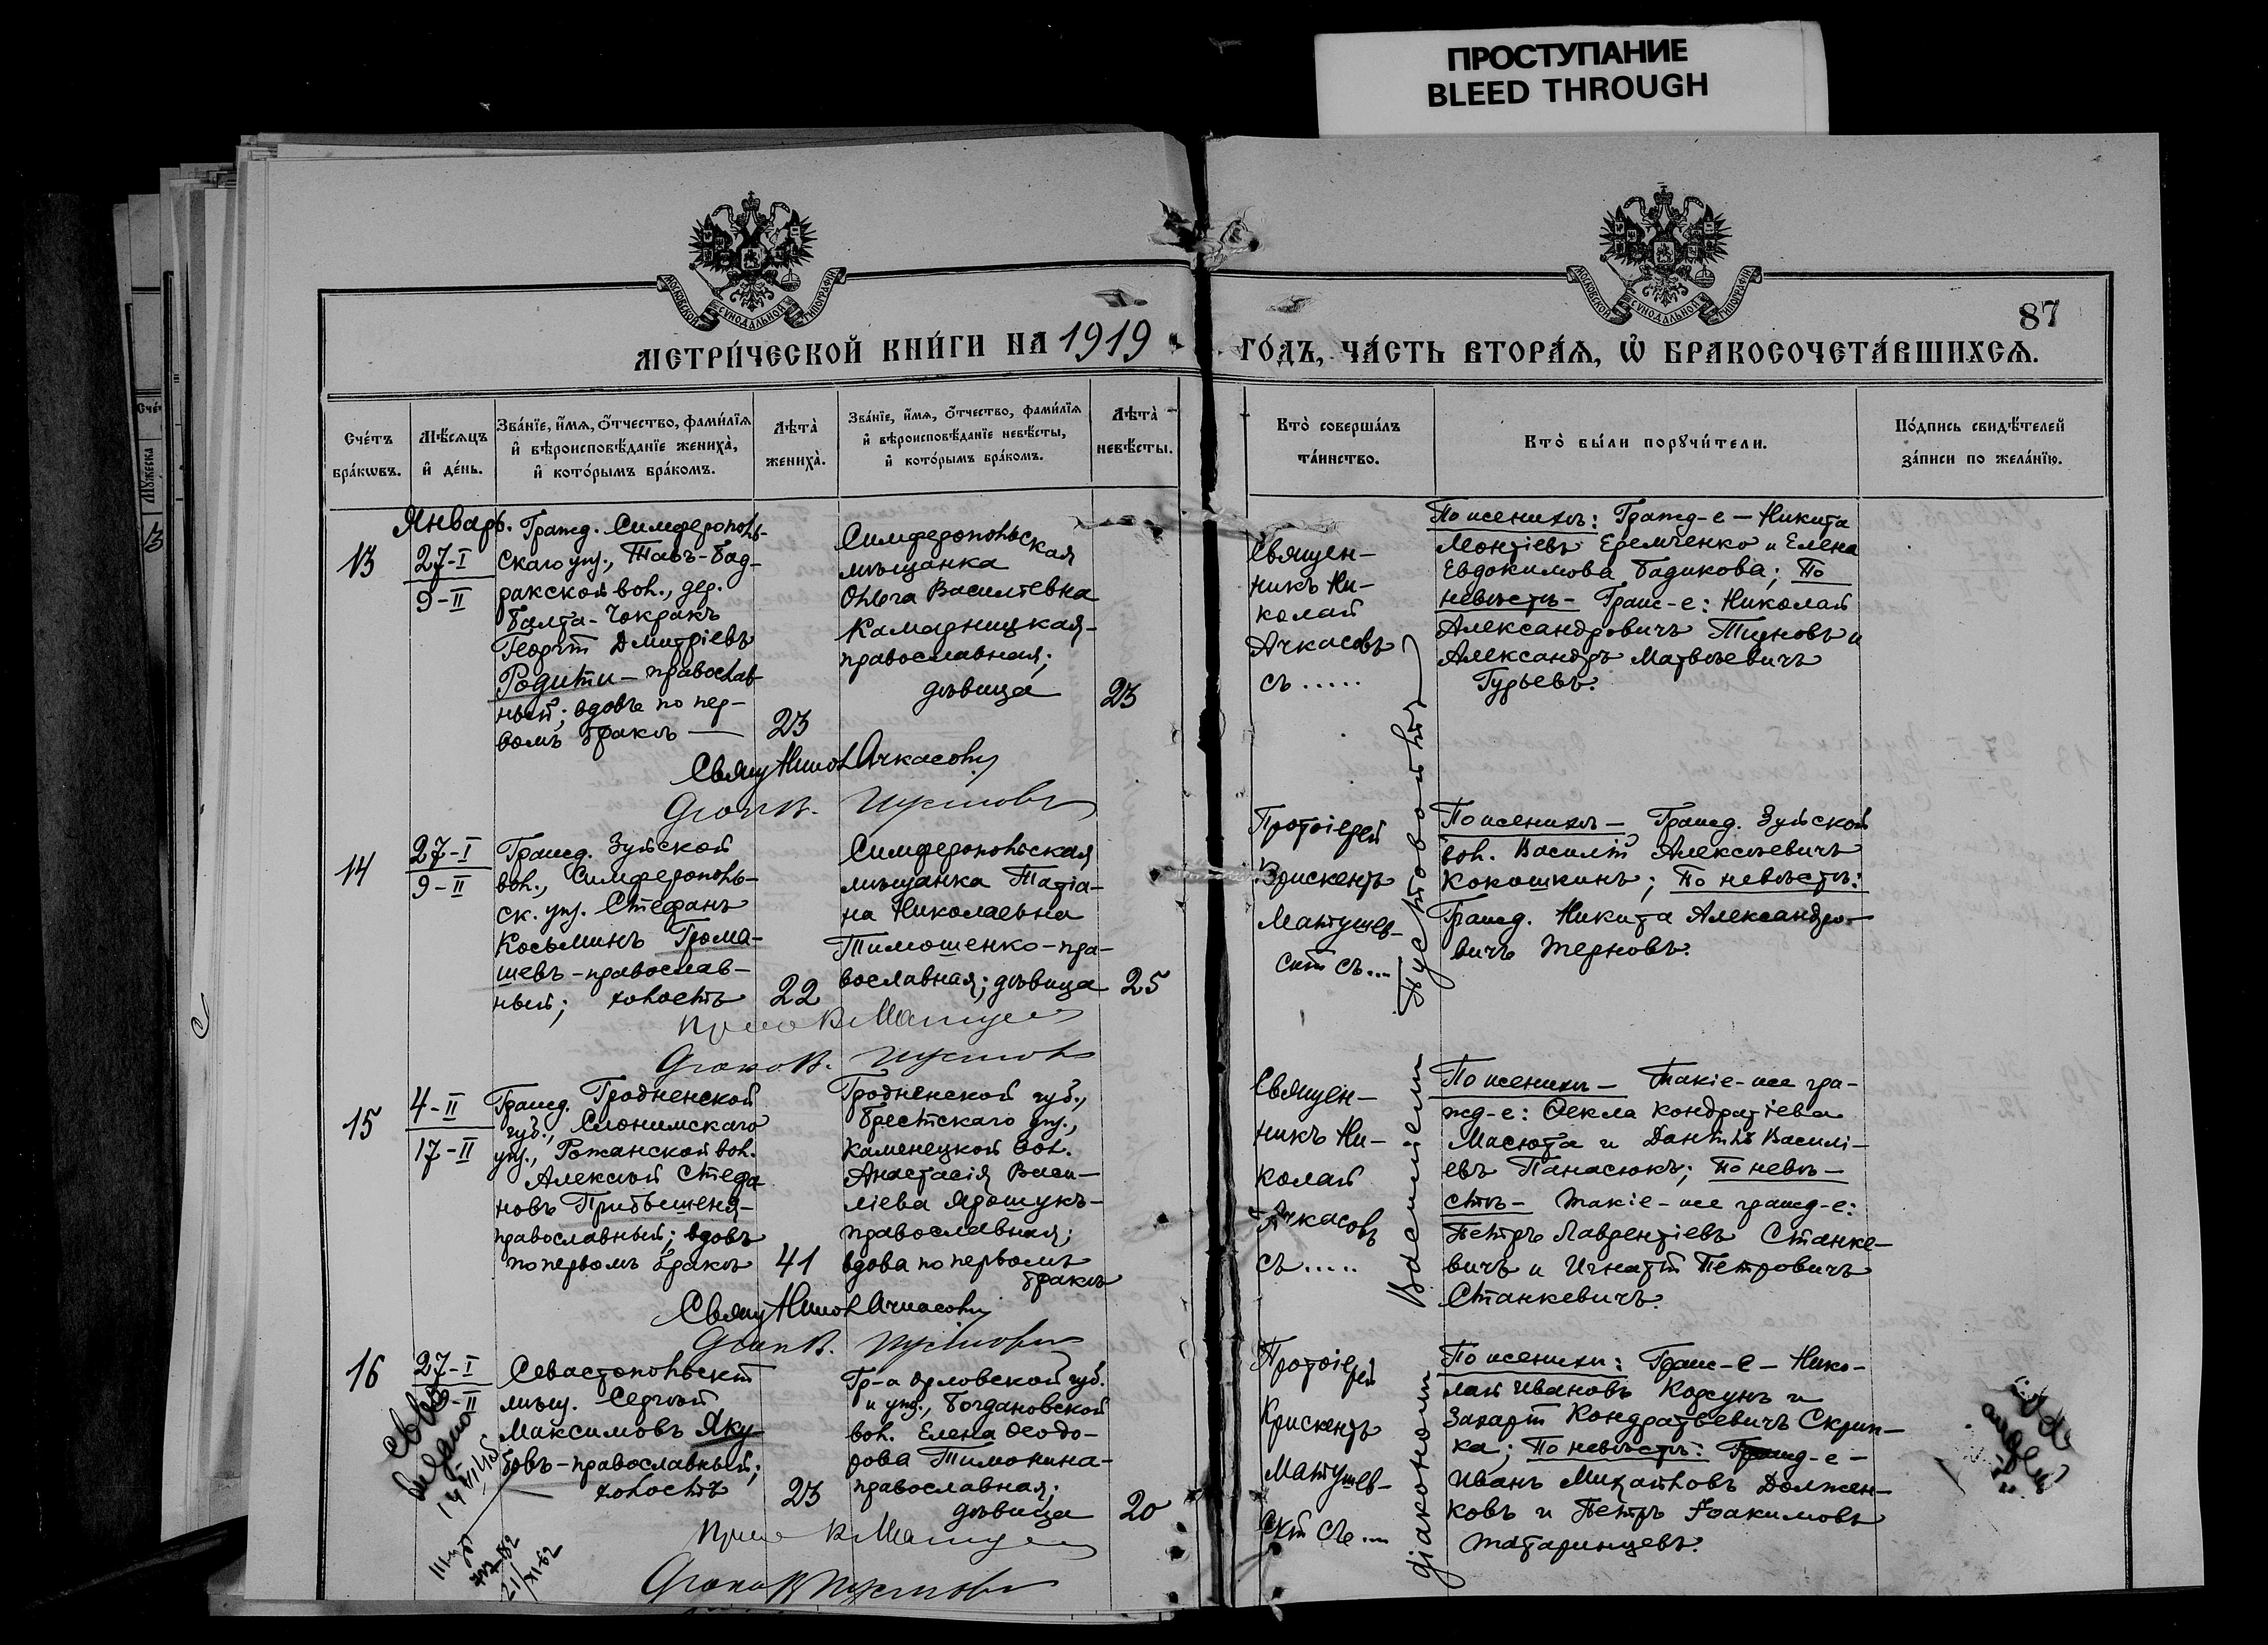 ПРОСТУПАНИЕ
BLEED THROUGH
МОСКОВСКОЙ СѴНОДАЛЬНОЙ ТИПОГРАФІИ
МОСКОВСКОЙ СѴНОДАЛЬНОЙ ТИПОГРАФІИ
87
МЕТРИ́ЧЕСКОЙ КНИ́ГИ НА 1919
ГО́ДЪ, ЧА́СТЬ ВТОРА́Я, Ѡ БРАКОСОЧЕТА́ВШИХСЯ.
Сче́тъ
бра́кѡвъ.
Мѣ́сяцъ
и҆ де́нь.
Зва́нїе, и҆́мя, ѻ҆́тчество, фами́лїя
и҆ вѣроисповѣ́данїе жениха̀,
и҆ кото́рымъ бра́комъ.
Лѣта̀
жениха̀.
Зва́нїе, и҆́мя, ѻ҆́тчество, фами́лїя
и҆ вѣроисповѣ́данїе невѣ́сты,
и҆ кото́рымъ бра́комъ.
Лѣта̀
невѣ́сты.
Кто̀ соверша́лъ
та́инство.
Кто̀ бы́ли порꙋчи́тели.
По́дпись свидѣ́телей
за́писи по жела́нїю.
13
Январь.
27-I
9-II
Гражд. Симферополь-
скаго уѣз., Тавъ-Бад-
ракской вол., дер.
Балта-Чокракъ
Георгій Дмитріевъ
Родити - православ-
ный; вдовъ по пер-
вомъ бракѣ —
23
Симферопольская
мѣщанка
Ольга Василіевна
Камарницкая -
православная;
дѣвица
23
Священ-
никъ Ни-
колай
Ачкасовъ
съ.....
По женихѣ: Гражд-е - Никита
Монтіевъ Еремченко и Елена
Евдокимова Бадикова; По
невѣстѣ - Граж-е: Николай
Александровичъ Тирновъ и
Александръ Матвѣевичъ
Гурьевъ.
Свящ Никол Ачкасовъ
Діак. В. Пустовой
14
27-I
9-II
Гражд. Зуйской
вол., Симферополь-
ск. уѣз. Стефанъ
Косьминъ Грома-
шевъ - православ-
ный; холостъ
22
Симферопольская
мѣщанка Татіа-
на Николаевна
Тимошенко - пра-
вославная; дѣвица
25
Протоіерей
Крискентъ
Матушев-
скій съ...
По женихѣ - Гражд. Зуйской
вол. Василій Алексѣевичъ
Кокошкинъ; По невѣстѣ:
Гражд. Никита Александро-
вичъ Терновъ.
Діакон В. Пустовой
15
4-II
17-II
Гражд. Гродненской
губ., Слонимскаго
уѣз., Рожанской вол.
Алексѣй Стефа
новъ Прибышеня -
православный; вдовъ
по первомъ бракѣ
41
Гродненской губ.,
Брестскаго уѣз.,
Каменецкой вол.
Анастасія Васи-
ліева Ярошукъ -
православная;
вдова по первомъ
бракѣ
Священ-
никъ Ни-
колай
Ачкасовъ
съ.....
По женихѣ - Такіе-же гра-
жд-е: Ѳекла Кондратіева
Масюта и Даніилъ Василі-
евъ Панасюкъ; По невѣ-
стѣ - Такіе-же гражд-е:
Петръ Лаврентіевъ Станке-
вичъ и Игнатій Петровичъ
Станкевичъ.
Свящ Никол Ачкасовъ
Діак. В. Пустовой
16
27-I
-II
Севастопольскій
мѣщ. Сергѣй
Максимовъ Яку-
бовъ - православный;
холостъ
23
Гр-а Орловской губ.
и уѣз., Богдановской
вол. Елена Ѳеодо-
рова Тимонина -
православная;
дѣвица
20
Протоіерей
Крискентъ
Матушев-
скій съ...
По женихѣ: Граж-е - Нико-
лай Ивановъ Корсунъ и
Захарій Кондратьевичъ Скрип-
ка; По невѣстѣ: Гражд-е -
Иванъ Михайловъ Должен-
ковъ и Петръ Іоакимовъ
Татаринцевъ.
Діакон В. Пустовой
діакономъ Василіемъ Пустовойтъ